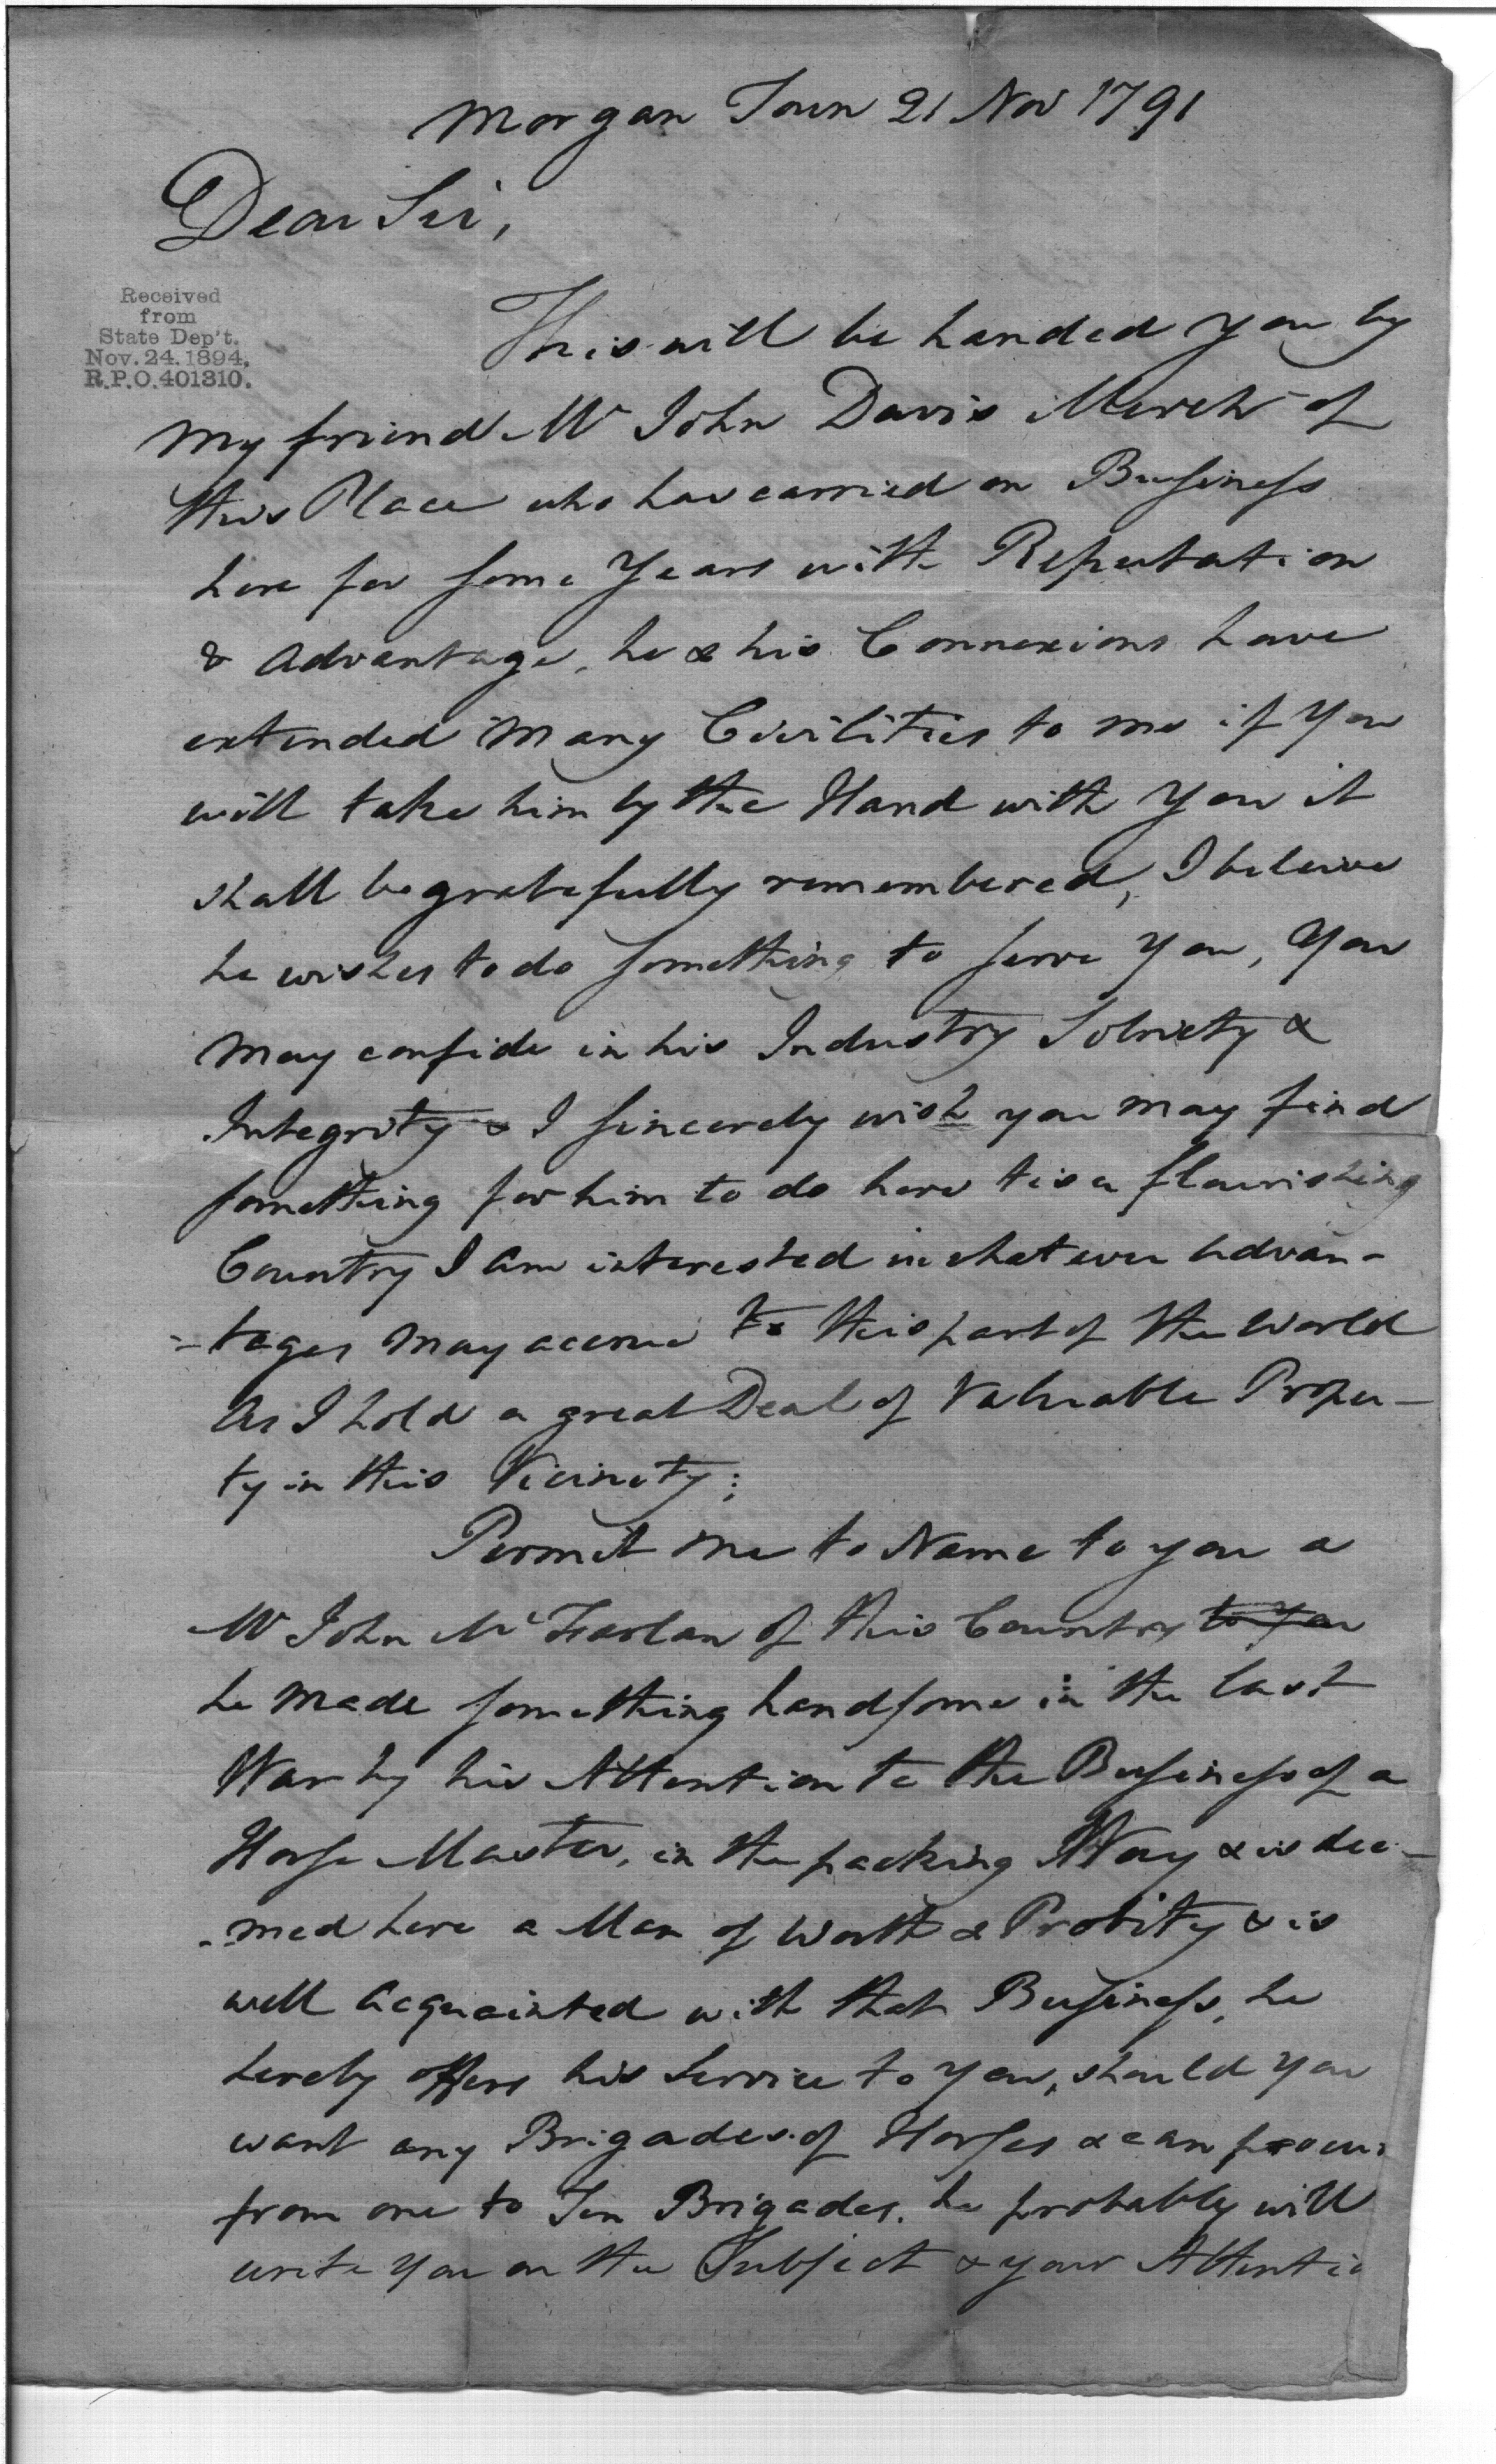 Morgan Town 21 Nov 1791
Dear Sir,
Received
from
State Dep't.
Nov. 24. 1894.
R.P.O. 401310.
This will be handed you by
my friend Mr John Davis Mercht of
this Place who has carried on Business
here for some Years with Reputation
& Advantage, he & his Connexions have
extended Many Civilities to me if You
will take him by the Hand with You it
shall be gratefully remembered, I beleive
he wishes to do something to serve You, You
May confide in his Industry Sobriety &
Integrity & I sincerely wish you may find
something for him to do here tis a flourishing
Country I am interested in whatever Advan-
-tages May accrue to this part of the World
As I hold a great Deal of Valuable Proper-
ty in this Vicinety;
Permit me to Name to you a
Mr John Mc Farlan of this Country to You
he Made something handsome in the last
War by his Attention to the Business of a
Horse Master, in the packing Way & is dee-
-med here a Man of Worth & Probity & is
well Acquainted with that Business, he
hereby offers his Service to You, should You
want any Brigades of Horses & can procure
from one to Ten Brigades. he probably will
write You on the Subject & your Attentio